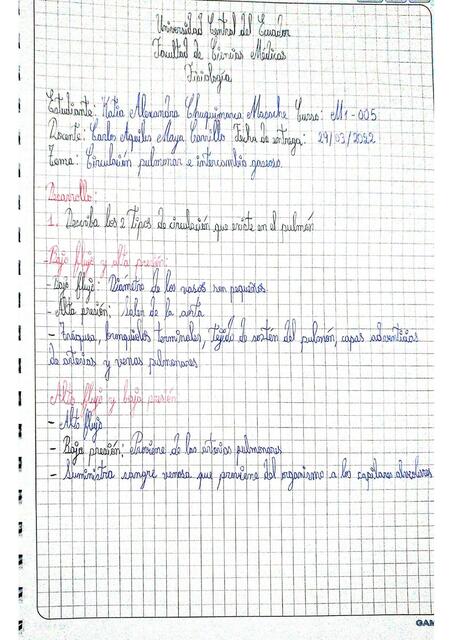 Universidad Central del Ecuador
Facultad de Ciencias Médicas
Fisiología
Estudiante: Katia Alexandra Chuquimarca Macache Curso: M1-005
Docente: Carlos Aquiles Maya Carrillo Fecha de entrega: 29/03/2022
Tema: Circulación pulmonar e intercambio gaseoso.
Desarrollo:
1. Describa los 2 Tipos de circulación que existe en el pulmón
-Bajo flujo y alta presión:
-Bajo flujo: Diámetro de los vasos son pequeños
-Alta presión: Salen de la aorta
-Tráquea, bronquiolos terminales, Tejido de sostén del pulmón, capas adventicias
de arterias y venas pulmonares
Alto flujo y baja presión
- Alto flujo
- Baja presión: Proviene de las arterias pulmonares
- Suministra sangre venosa que proviene del organismo a los capilares alveolares
GAM